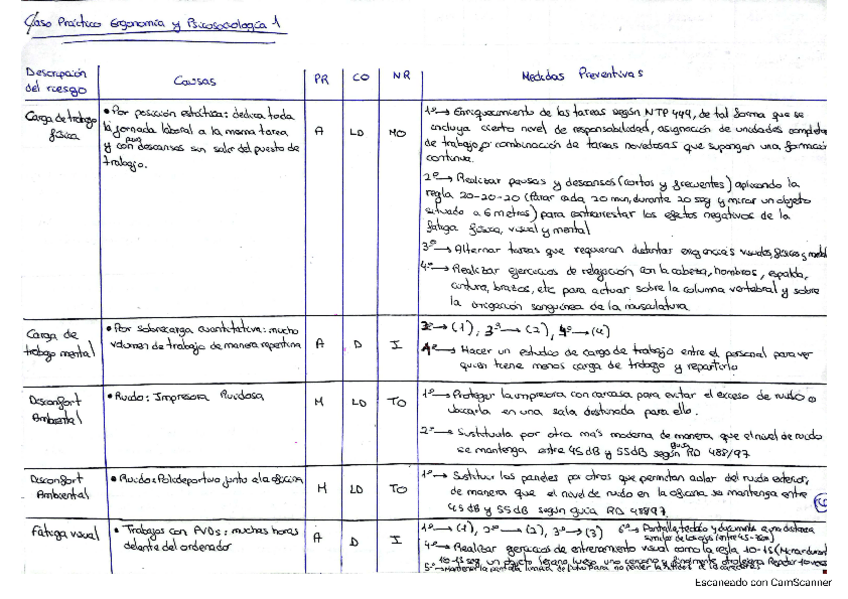 Caso Práctico Ergonomía y Psicosociología 1
Descripción del riesgo
Causas
PR
CO
NR
Medidas Preventivas
Carga de trabajo física
• Por posición estática: dedica toda
la jornada laboral a la misma tarea
y con descansos sin salir del puesto de
trabajo.
A
LD
MO
1º → Enriquecimiento de las tareas según NTP 444, de tal forma que se
incluya cierto nivel de responsabilidad, asignación de unidades completas
de trabajo, o combinación de tareas novedosas que supongan una formación
continua.
2º → Realizar pausas y descansos (cortos y frecuentes) aplicando la
regla 20-20-20 (Parar cada 20 min, durante 20 seg y mirar un objeto
situado a 6 metros) para contrarrestar los efectos negativos de la
fatiga física, visual y mental
3º → Alternar tareas que requieran distintas exigencias visuales, físicas y mental
4º → Realizar ejercicios de relajación con la cabeza, hombros, espalda,
cintura, brazos, etc para actuar sobre la columna vertebral y sobre
la irrigación sanguínea de la musculatura
Carga de
trabajo mental
• Por sobrecarga cuantitativa: mucho
volumen de trabajo de manera repentina
A
D
I
→ (1), 3º → (2), → (4)
→ Hacer un estudio de carga de trabajo entre el personal para ver
quien tiene menos carga de trabajo y repartirlo
Disconfort
Ambiental
• Ruido: Impresora Ruidosa
M
LD
TO
1º → Proteger la impresora con carcasa para evitar el exceso de ruido o
ubicarla en una sala destinada para ello.
2º → Sustituirla por otra más moderna de manera que el nivel de ruido
se mantenga entre 45 dB y 55dB según guía RD 488/97
Disconfort
Ambiental
• Ruido: Polideportivo junto a la oficina
M
LD
TO
1º → Sustituir los paneles por otros que permitan aislar del ruido exterior,
de manera que el nivel de ruido en la oficina se mantenga entre
45 dB y 55 dB según guía RD 488/97.
Fatiga visual
• Trabajos con PVDs: muchas horas
delante del ordenador
A
D
I
1º → (1), 2º → (2), 3º → (3) 6º → Pantalla, teclado y documento a una distancia
similar de los ojos (entre 45-
4º → Realizar ejercicios de entrenamiento visual como la regla 10-15 (Mirar durante
10-15 seg un objeto lejano, luego uno cercano y finalmente otro lejano. Repetir 10 veces
5º → Mantener la pantalla limpia de polvo para no perder la nitidez de los caracteres
Escaneado con CamScanner